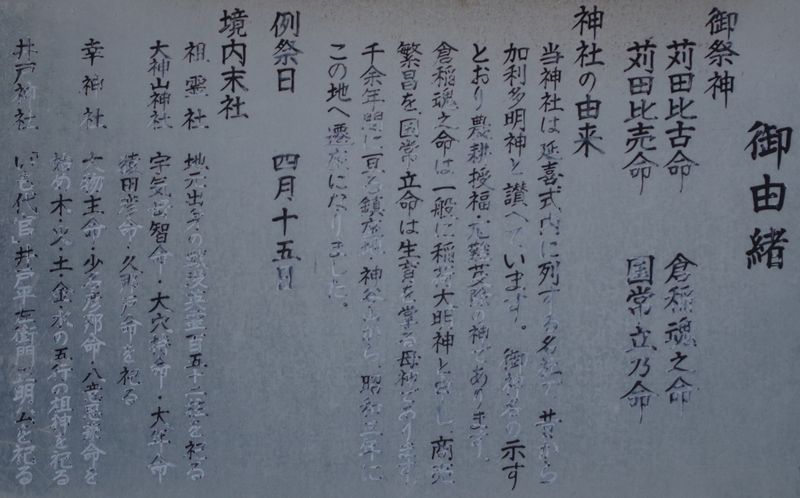 御由緒
御祭神
苅田比古命 倉稲魂之命
苅田比売命 国常立乃命
神社の由来
当神社は延喜式内に列する名社で 昔から
加利多明神と讃へています。 御祭神の示す
とおり農耕授福・厄難苦除の神であります。
倉稲魂之命は一般に稲荷大明神と申し、商売
繁昌を、国常立命は生育を掌る母神であります。
千余年間に亘る鎮座地・神谷から、昭和三年に
この地へ遷座になりました。
例祭日 四月十五日
境内末社
祖霊社 地元出身の 五十二柱を祀る
大神山神社 大穴 命・大 命
猿田彦命・久那戸命を祀る
幸神社 大物主命・少名彦那命・八意思兼命を
始め木・火・土・金・水の五行の祖神を祀る
井戸神社 いも代官 井戸平左衛門 明 を祀る